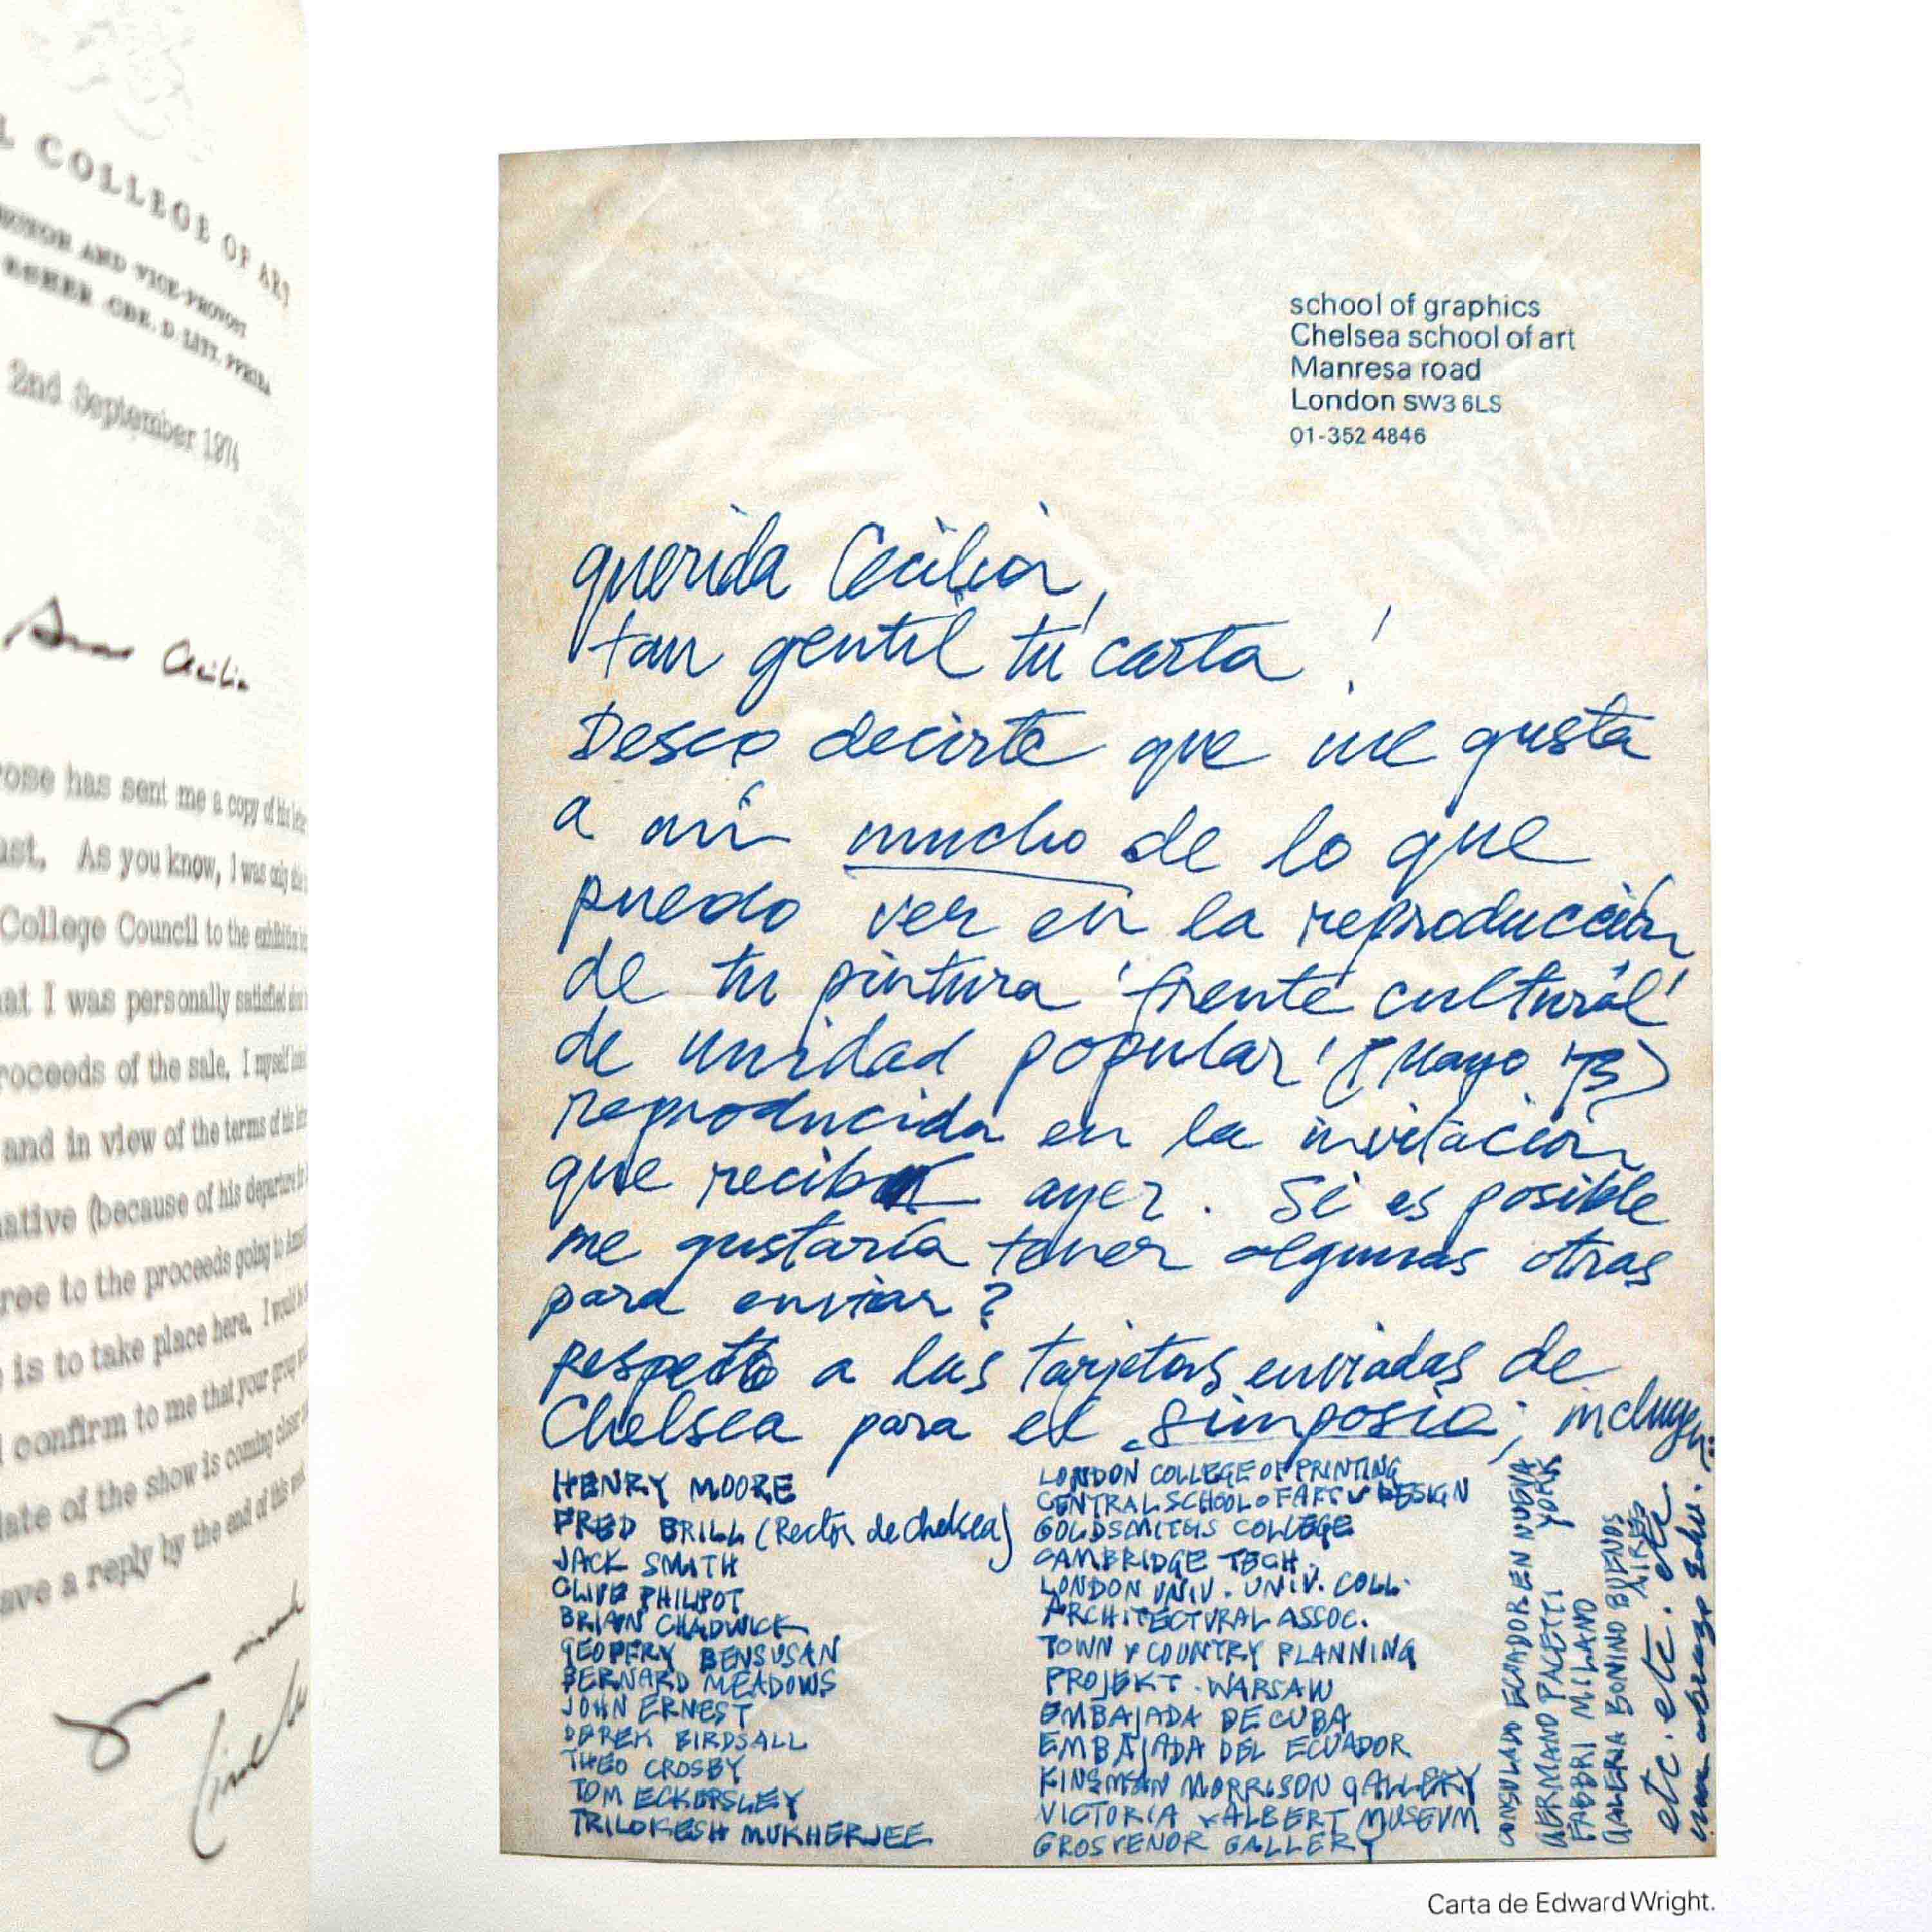 L COLLEGE OF ART
AND VICE-PROVOST
ESHER CBE. D.LITT. PPRIBA
2nd September 1974
Cecilia
rose has sent me a copy of his
ast. As you know, I was only
College Council to the exhibition
at I was personally satisfied
roceeds of the sale, I myself
and in view of the terms of his
ative (because of his departure
ree to the proceeds going to
is to take place here. I would
confirm to me that your group
late of the show is coming
ave a reply by the end of this week
school of graphics
Chelsea school of art
Manresa road
London SW3 6LS
01-352 4846
querida Cecilia,
tan gentil tu carta!
Deseo decirte que me gusta
a mi mucho de lo que
puedo ver en la reproducción
de tu pintura 'frente cultural
de unidad popular' (Mayo 73)
reproducida en la invitación
que recibí ayer. Si es posible
me gustaría tener algunas otras
para enviar?
respecto a las tarjetas enviadas de
Chelsea para el simposio; incluyen:
HENRY MOORE
FRED BRILL (Rector de Chelsea)
JACK SMITH
CLIVE PHILPOT
BRIAN CHADWICK
GEOFFRY BENSUSAN
BERNARD MEADOWS
JOHN ERNEST
DEREK BIRDSALL
THEO CROSBY
TOM ECKERSLEY
TRILOKESH MUKHERJEE
LONDON COLLEGE OF PRINTING
CENTRAL SCHOOL OF ART Y DESIGN
GOLDSMITHS COLLEGE
CAMBRIDGE TECH.
LONDON UNIV. UNIV. COLL.
ARCHITECTURAL ASSOC.
TOWN Y COUNTRY PLANNING
PROJEKT. WARSAW
EMBAJADA DE CUBA
EMBAJADA DEL ECUADOR
KINSMAN MORRISON GALLERY
VICTORIA Y ALBERT MUSEUM
GROSVENOR GALLERY
CONSULADO ECUADOR EN NUEVA YORK
GERMANO FACETTI
FABBRI MILANO
GALERIA BONINO BUENOS AIRES
etc. etc. etc
un abrazo Edw.
Carta de Edward Wright.